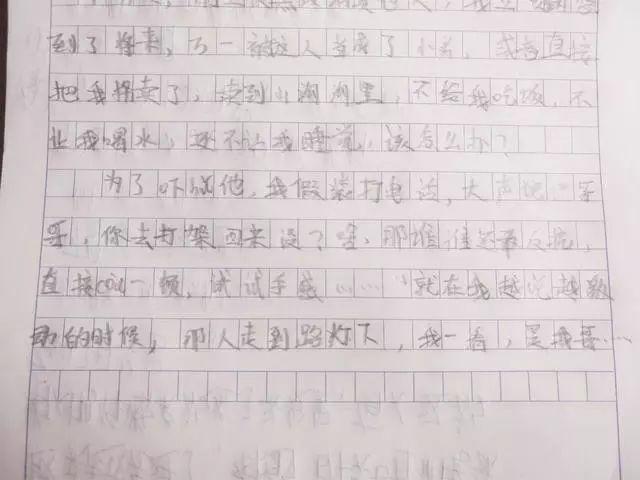 到了将来，万一被坏人当成了小孩，或者直接
把我拐卖了，卖到山沟沟里，不给我吃饭，不
让我喝水，还不让我睡觉，该怎么办？
为了吓唬他，我假装打电话，大声说：哥
哥，你去打架回来没？哇，那谁谁还敢反抗，
直接口一顿，试试手感……就在我越说越激
动的时候，那人走到路灯下，我一看，是我哥…